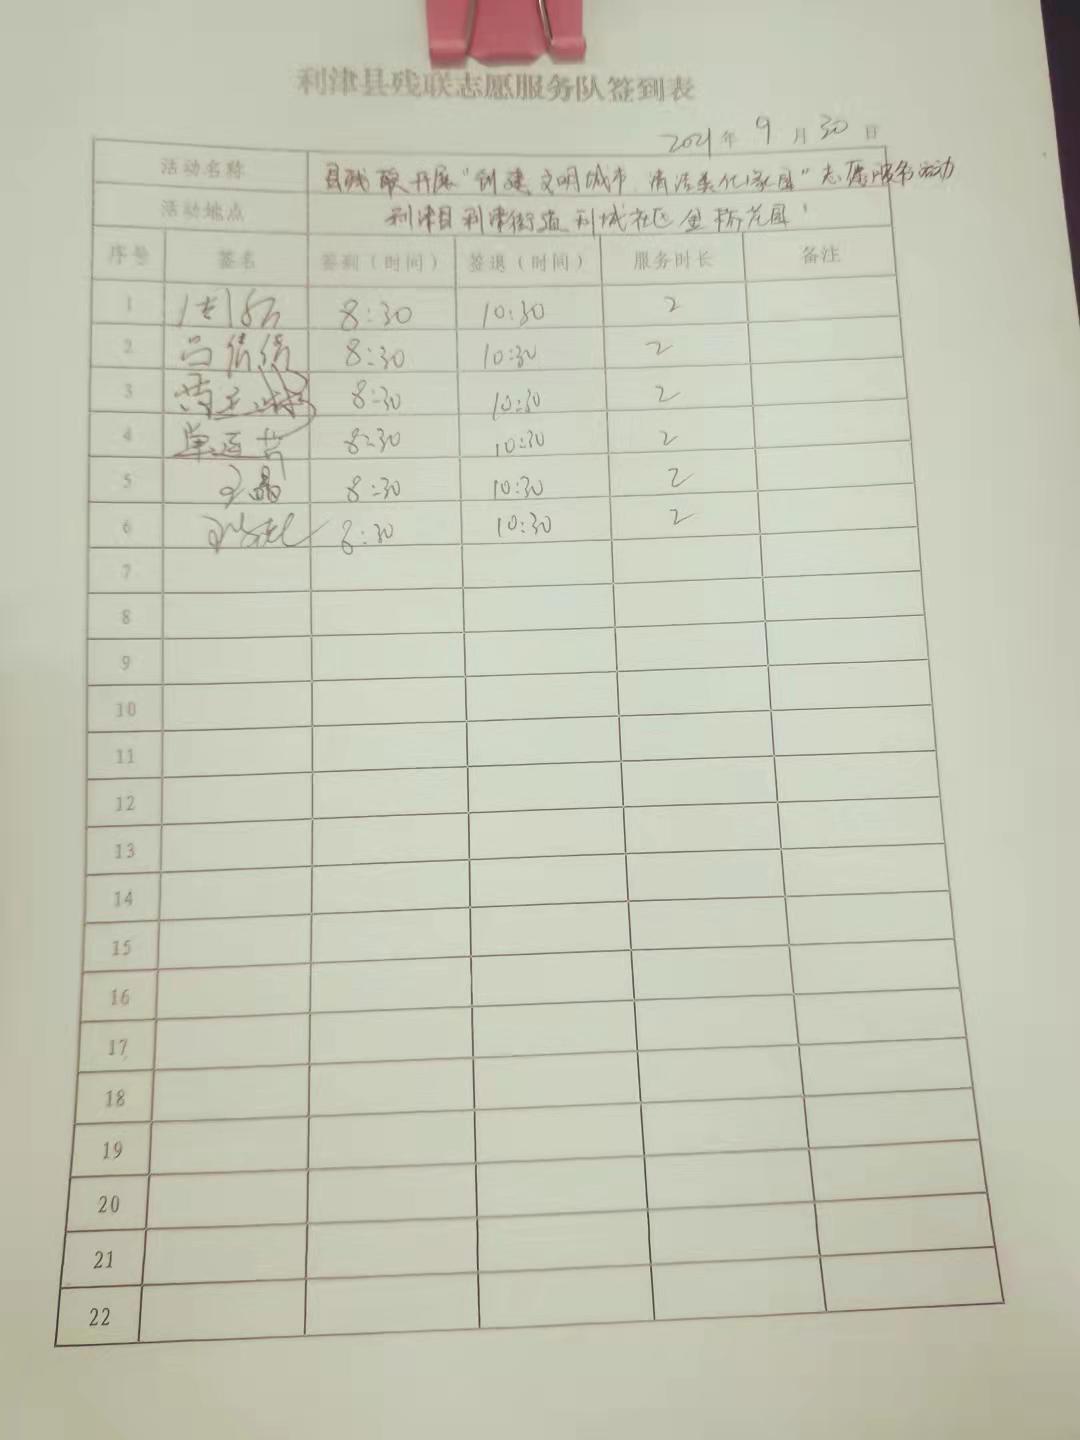 利津县残联志愿服务队签到表
2021年 9 月 30 日
活动名称 县残联开展"创建文明城市 清洁美化家园"志愿服务活动
活动地点 利津县利津街道利城社区金桥花园
序号 签名 签到(时间) 签退(时间) 服务时长 备注
1 8:30 10:30 2
2 吕倩倩 8:30 10:30 2
3 8:30 10:30 2
4 单连芳 8:30 10:30 2
5 王晶 8:30 10:30 2
6 8:30 10:30 2
7
8
9
10
11
12
13
14
15
16
17
18
19
20
21
22